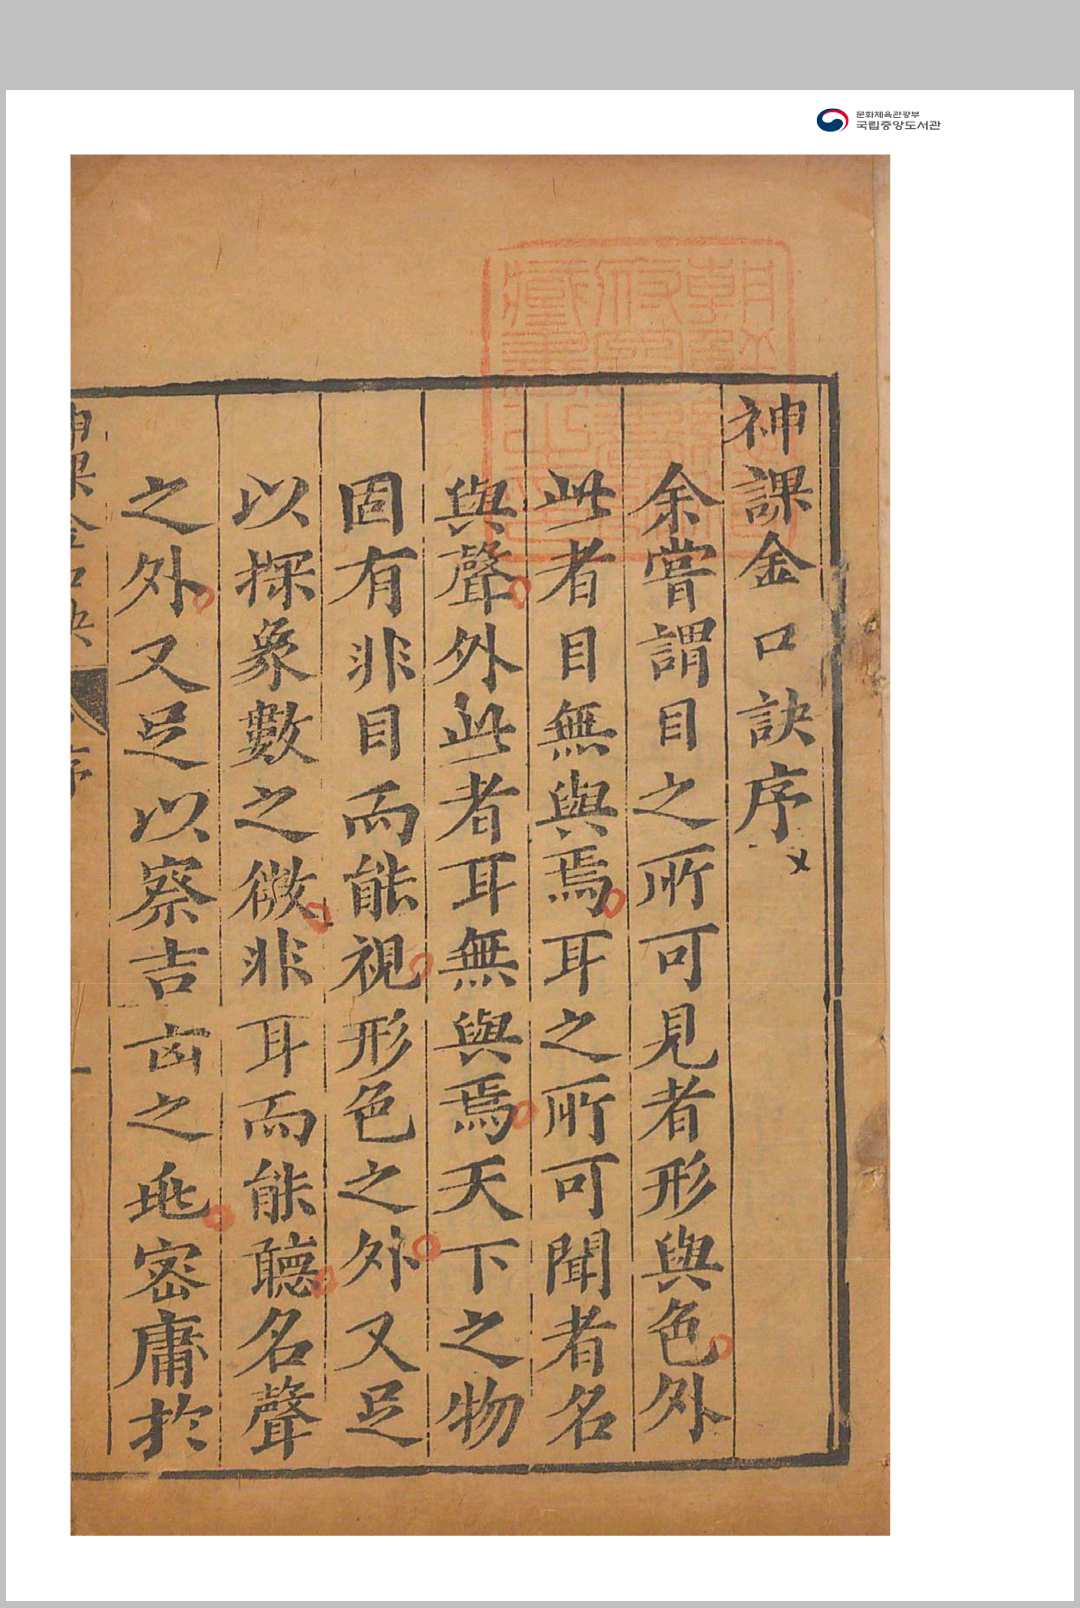 문화체육관광부
국립중앙도서관
神課金口訣序
余嘗謂目之所可見者形與色外
此者目無與焉耳之所可聞者名
與聲外此者耳無與焉天下之物
固有非目而能視形色之外又足
以探象數之微非耳而能聽名聲
之外又足以察吉凶之兆密庸於